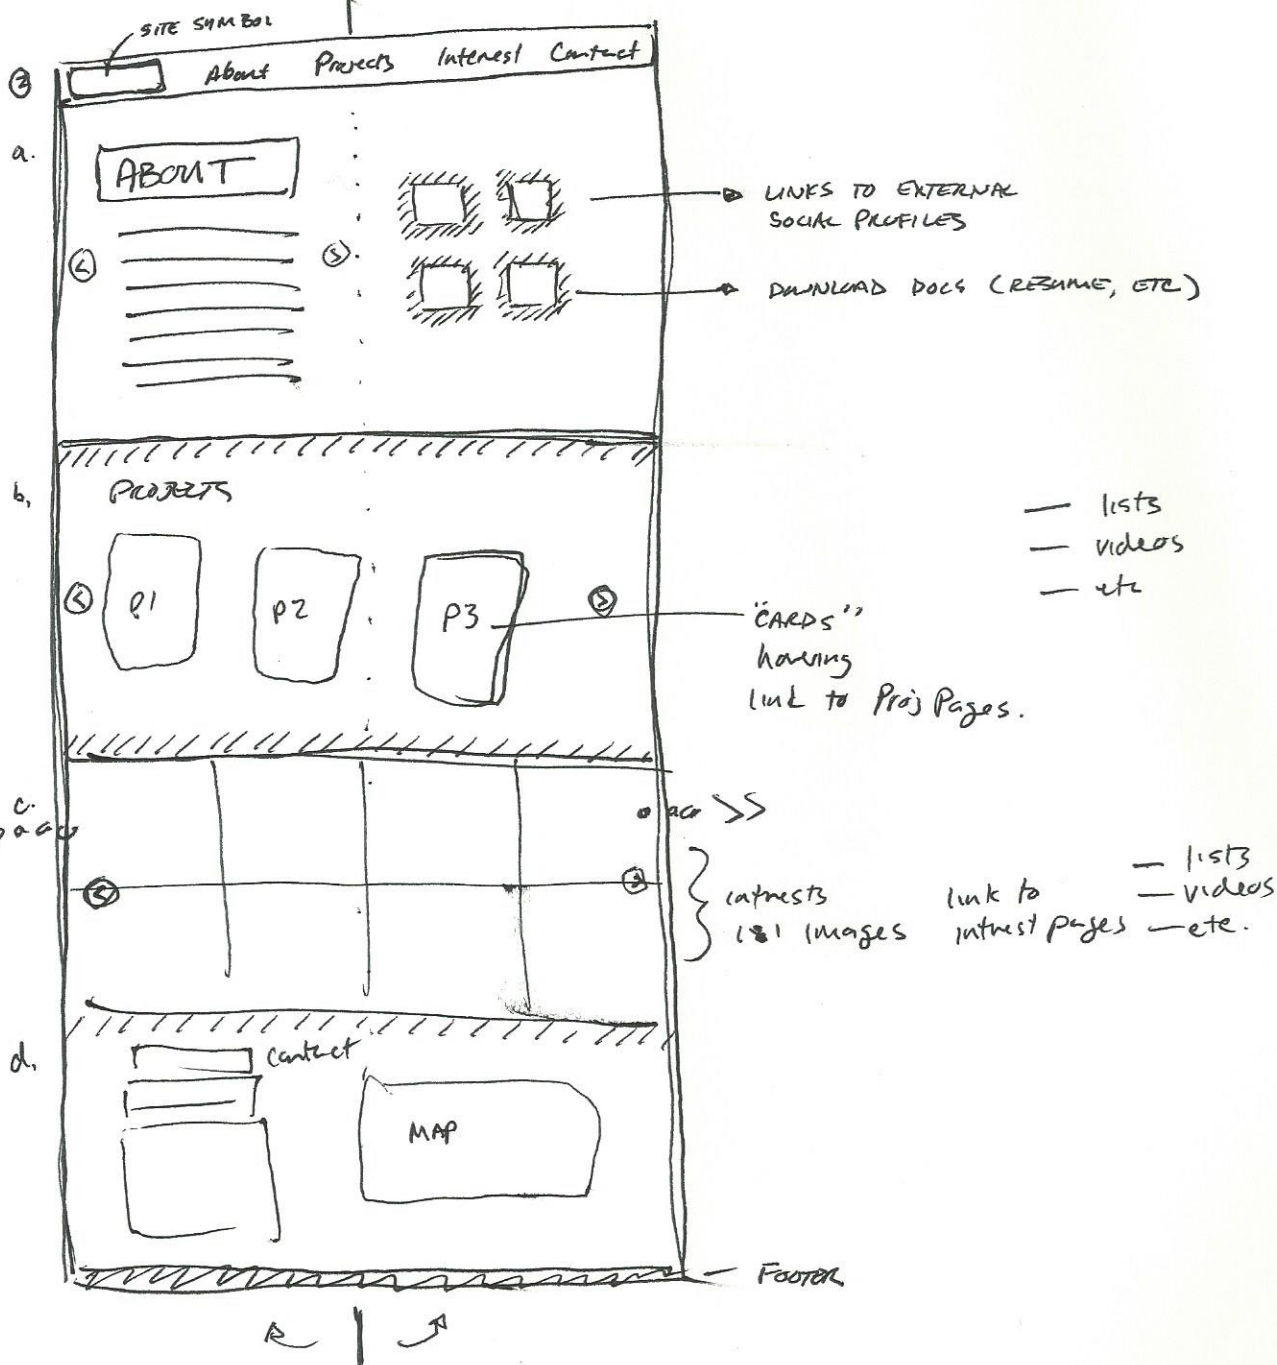 SITE SYMBOL
About Projects Interest Contact
a.
ABOUT
LINKS TO EXTERNAL
SOCIAL PROFILES
DOWNLOAD DOCS (RESUME, ETC)
b,
PROJECTS
— lists
— videos
— etc
P1 P2 P3
"CARDS"
hovering
link to Proj Pages.
c.
>>
intrests
images
link to
intrest pages
— lists
— videos
— etc.
d,
Contact
MAP
FOOTER